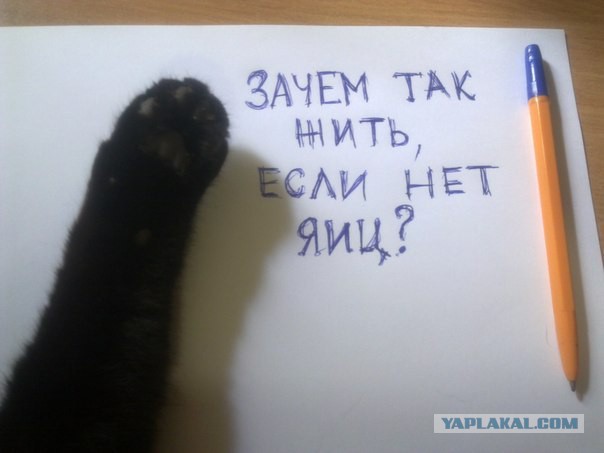 ЗАЧЕМ ТАК
ЖИТЬ,
ЕСЛИ НЕТ
ЯИЦ?
YAPLAKAL.COM